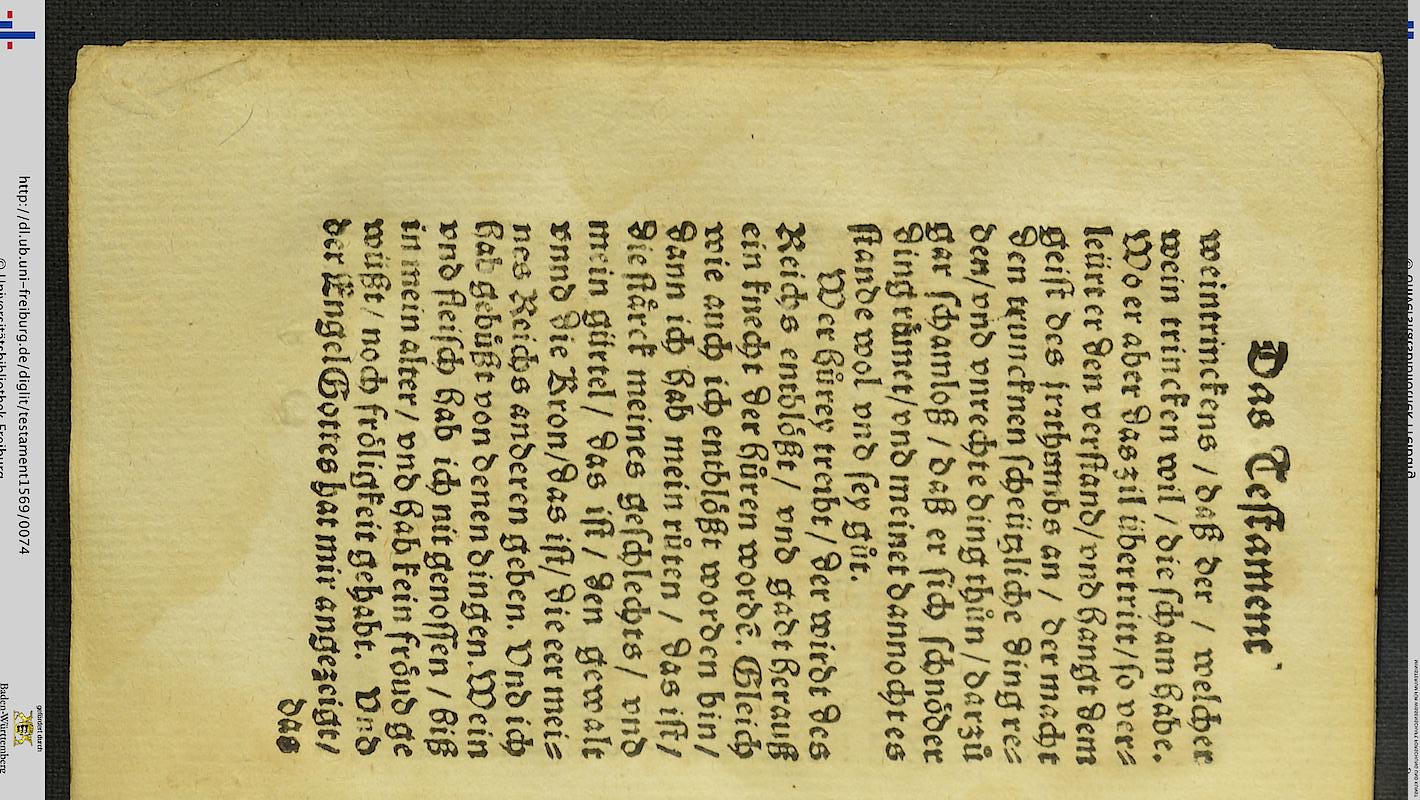 Das Testament
weintrinckens / daß der / welcher
wein trincken wil / die scham habe.
Wo er aber das zil übertritt / so ver⸗
leürt er den verstand / vnd hangt dem
geist des irrthumbs an / der macht
den truncknen scheützliche ding re⸗
den / vnd vnrechte ding thůn / darzů
gar schamloß / daß er sich schnöder
ding růmet / vnd meinet dannocht es
stande wol vnd sey gůt.
Wer hůrey treibt / der wirdt des
Reichs entblößt / vnd gadt herauß
ein knecht der hůren wordē. Gleich
wie auch ich entblößt worden bin /
dann ich hab mein růten / das ist /
die stärck meines geschlechts / vnd
mein gürtel / das ist / den gewalt
vnnd die Kron / das ist / die eer mei⸗
nes Reichs anderen geben. Vnd ich
hab gebůßt von denen dingen. Wein
vnd fleisch hab ich nit genossen / biß
in mein alter / vnd hab kein fröud ge
wüßt / noch fröligkeit gehabt. Vnd
der Engel Gottes hat mir angezeigt /
das
http://dl.ub.uni-freiburg.de/diglit/testament1569/0074
© Universitätsbibliothek Freiburg
gefördert durch
Baden-Württemberg